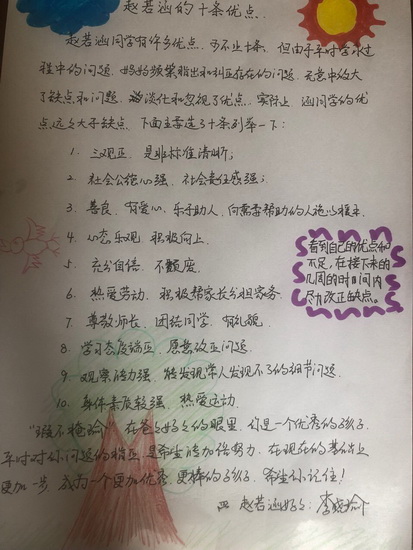 赵若涵的十条优点.
赵若涵同学有许多优点,可不止十条,但由于平时学习过
程中的问题,妈妈频繁指出和纠正存在的问题,无意中放大
了缺点和问题,淡化和忽视了优点,实际上,涵同学的优
点远远大于缺点,下面主要选了十条列举一下:
1. 三观正,是非标准清晰;
2. 社会公德心强,社会责任感强;
3. 善良,有爱心,乐于助人,向需要帮助的人施以援手
4. 心态乐观,积极向上.
5. 充分自信,不颓废.
6. 热爱劳动,积极帮家长分担家务.
7. 尊敬师长,团结同学,有礼貌.
8. 学习态度端正,愿意改正问题.
9. 观察能力强,能发现常人发现不了的细节问题.
10. 身体素质较强,热爱运动.
看到自己的优点和
不足,在接下来的
几周的时间内
尽力改正缺点。
"瑕不掩瑜" 在爸妈的眼里,你是一个优秀的孩子.
平时对你问题的指正,是希望你加倍努力,在现在的基础上
更加一步,成为一个更加优秀,更棒的孩子,希望你记住!
赵若涵妈妈:李